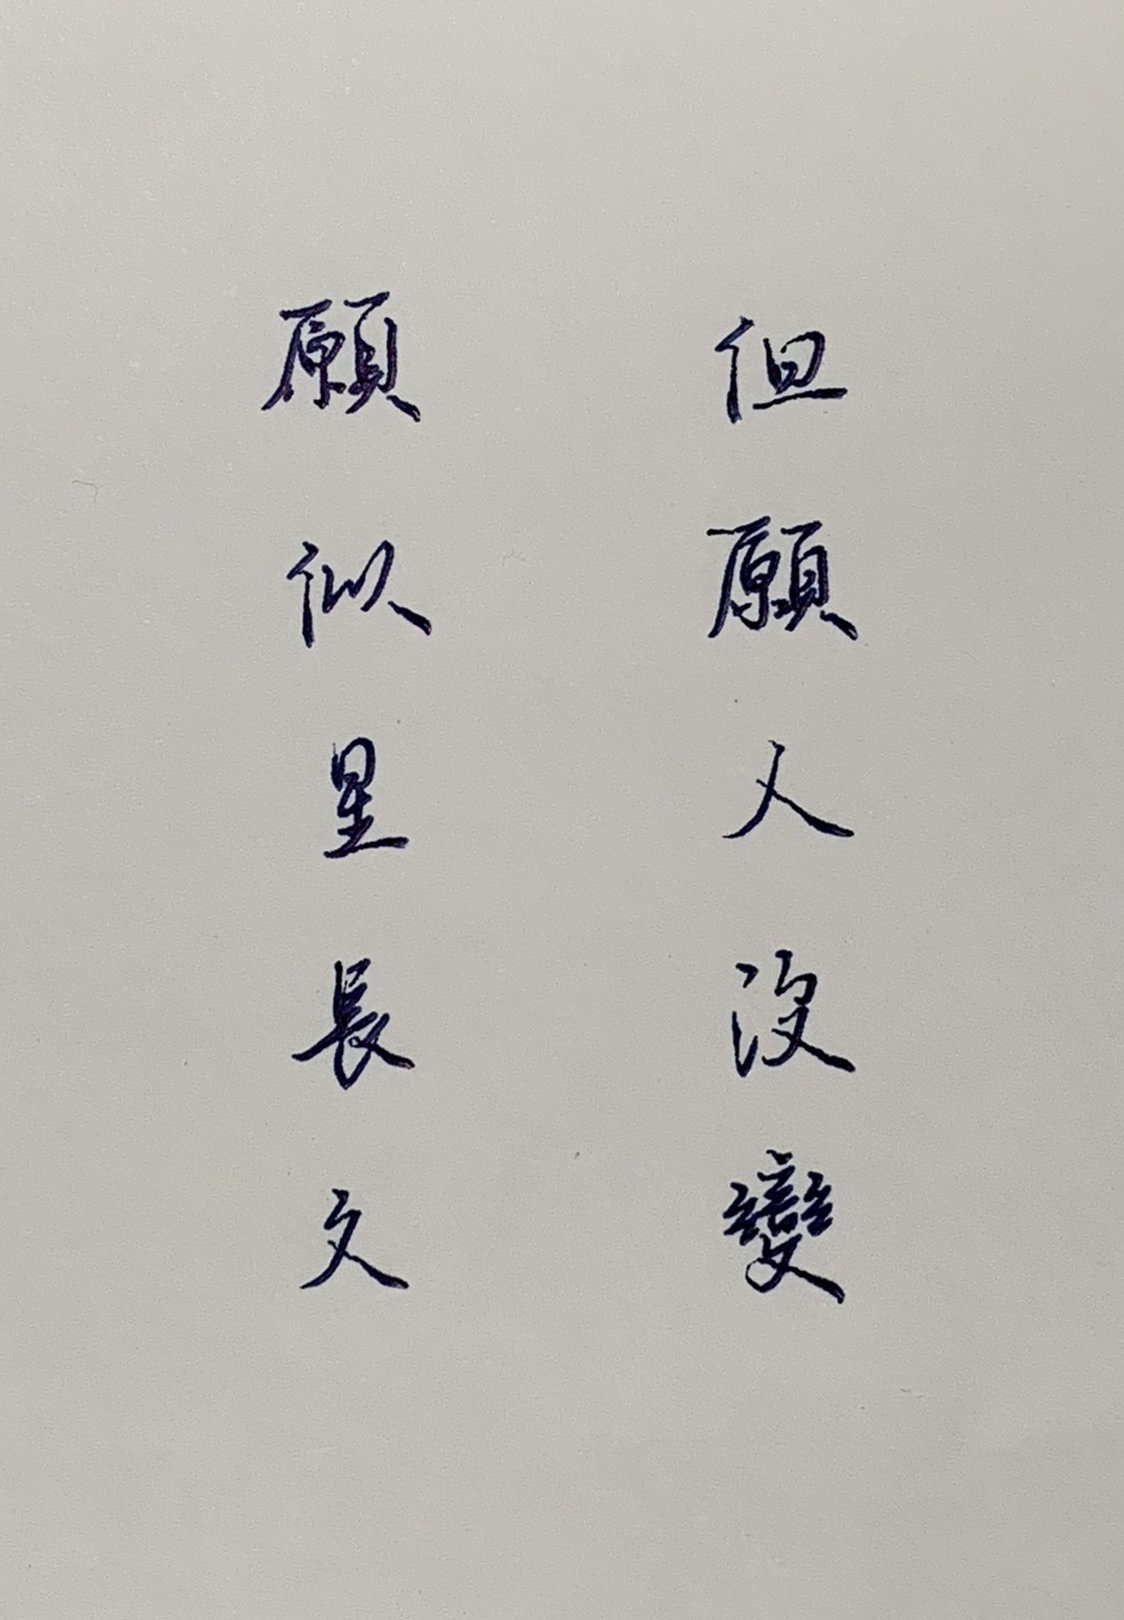 但願人沒變
願似星長文